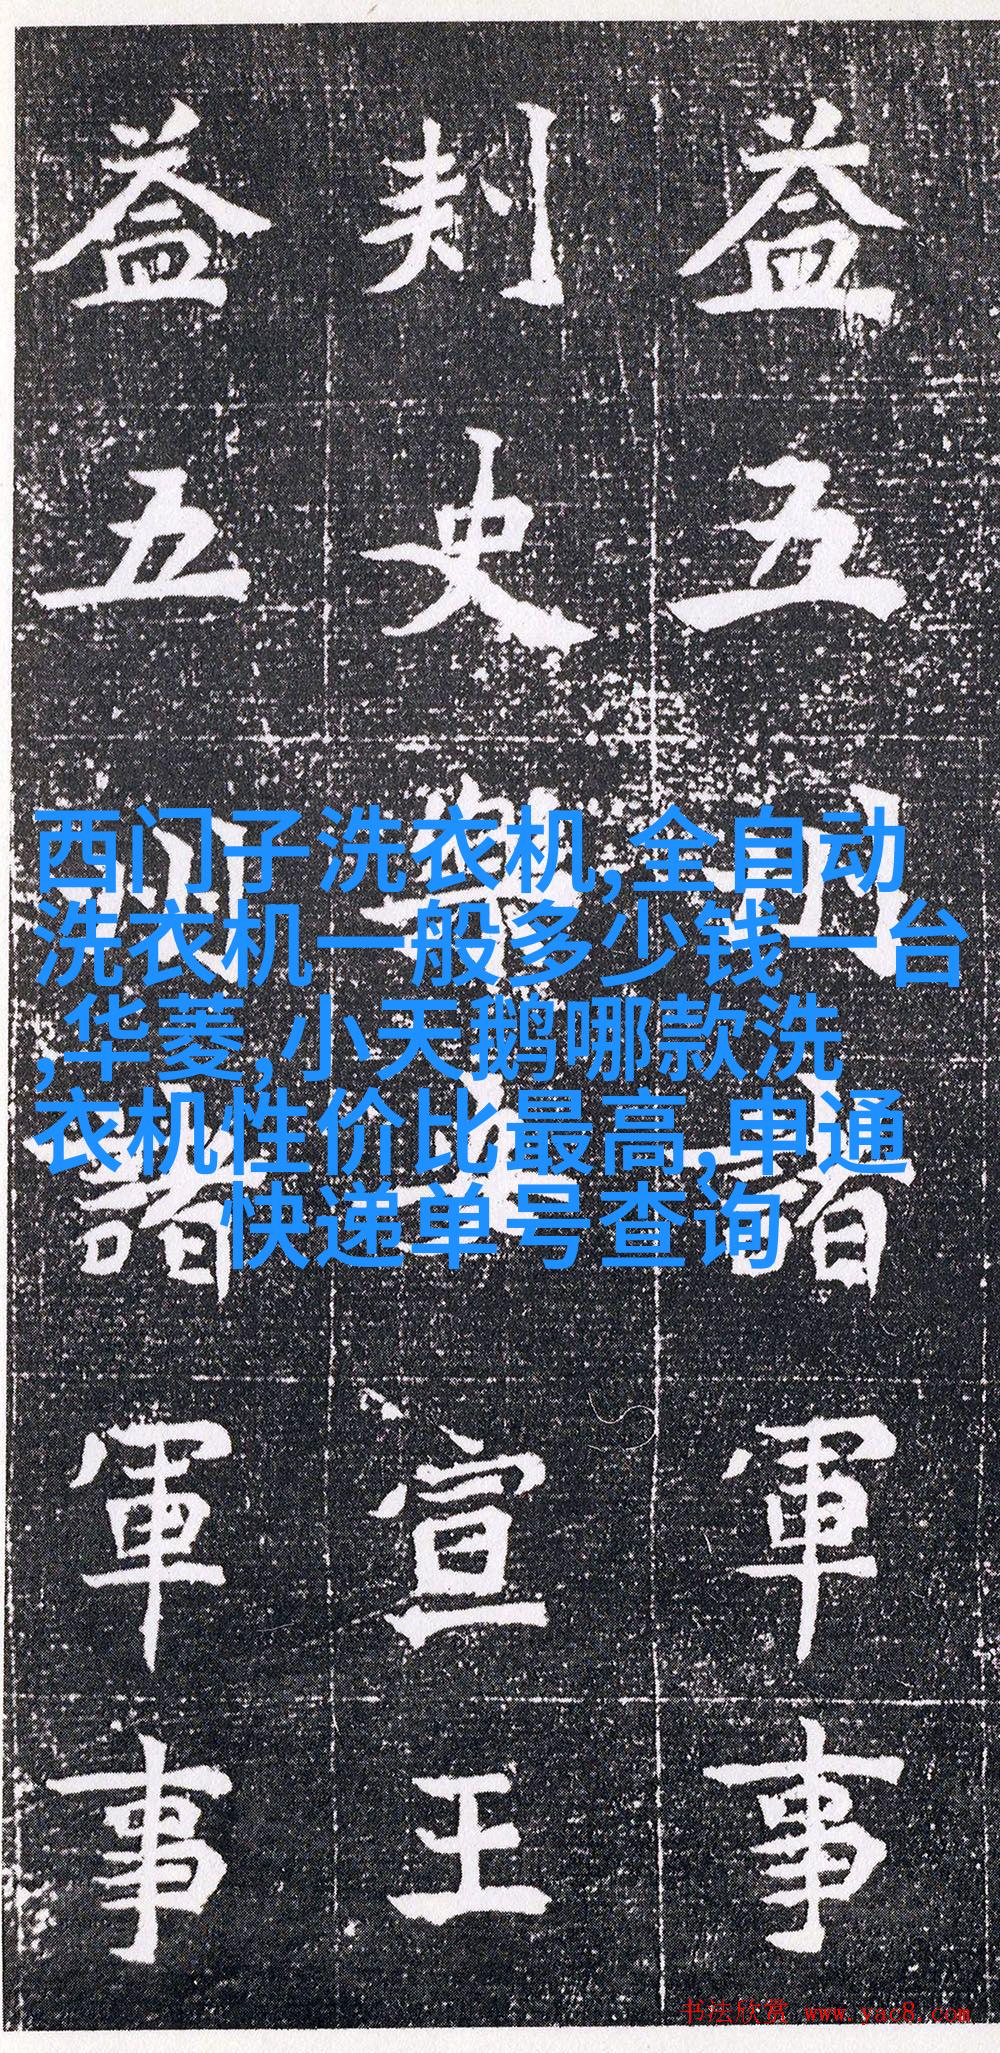 益五州諸軍事
刾史樂安宣王
益五州諸軍事
西门子洗衣机,全自动
洗衣机一般多少钱一台
,华菱,小天鹅哪款洗
衣机性价比最高,申通
快递单号查询
书法欣赏 www.yac8.com